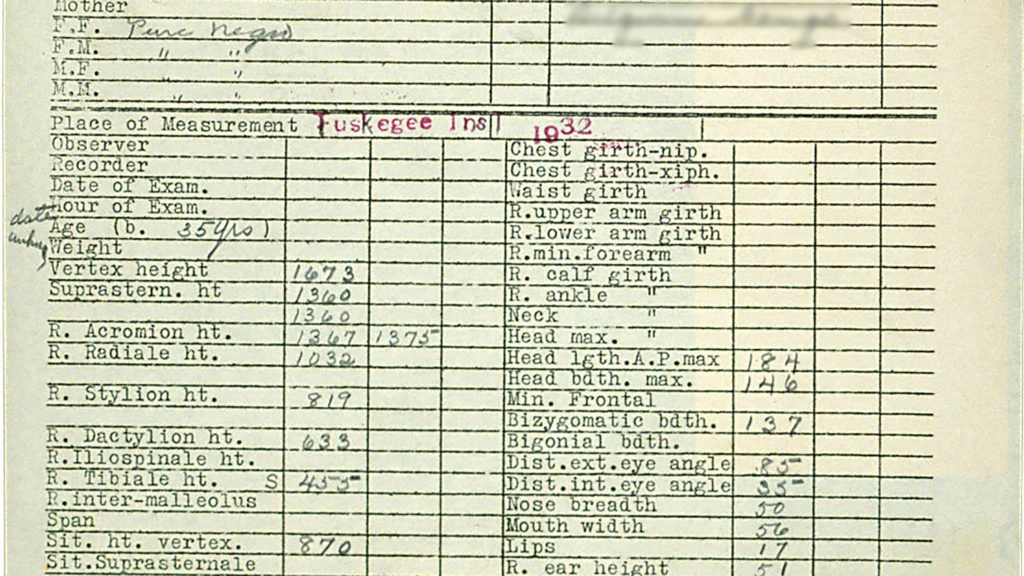 Mother
F.F. Pure Negro
F.M. " "
M.F. " "
M.M. " "
Place of Measurement Tuskegee Inst 1932
Observer
Recorder
Date of Exam.
Hour of Exam.
date
Age (b. 35yrs)
Weight
Vertex height 1673
Suprastern. ht 1360
1360
R. Acromion ht. 1367 1375
R. Radiale ht. 1032
R. Stylion ht. 819
R. Dactylion ht. 633
R.Iliospinale ht.
R. Tibiale ht. S 455
R.inter-malleolus
Span
Sit. ht. vertex. 870
Sit.Suprasternale
Chest girth-nip.
Chest girth-xiph.
Waist girth
R.upper arm girth
R.lower arm girth
R.min.forearm "
R. calf girth
R. ankle "
Neck "
Head max. "
Head lgth.A.P.max 184
Head bdth. max. 146
Min. Frontal
Bizygomatic bdth. 137
Bigonial bdth.
Dist.ext.eye angle 85
Dist.int.eye angle 35
Nose breadth 50
Mouth width 56
Lips 17
R. ear height 51